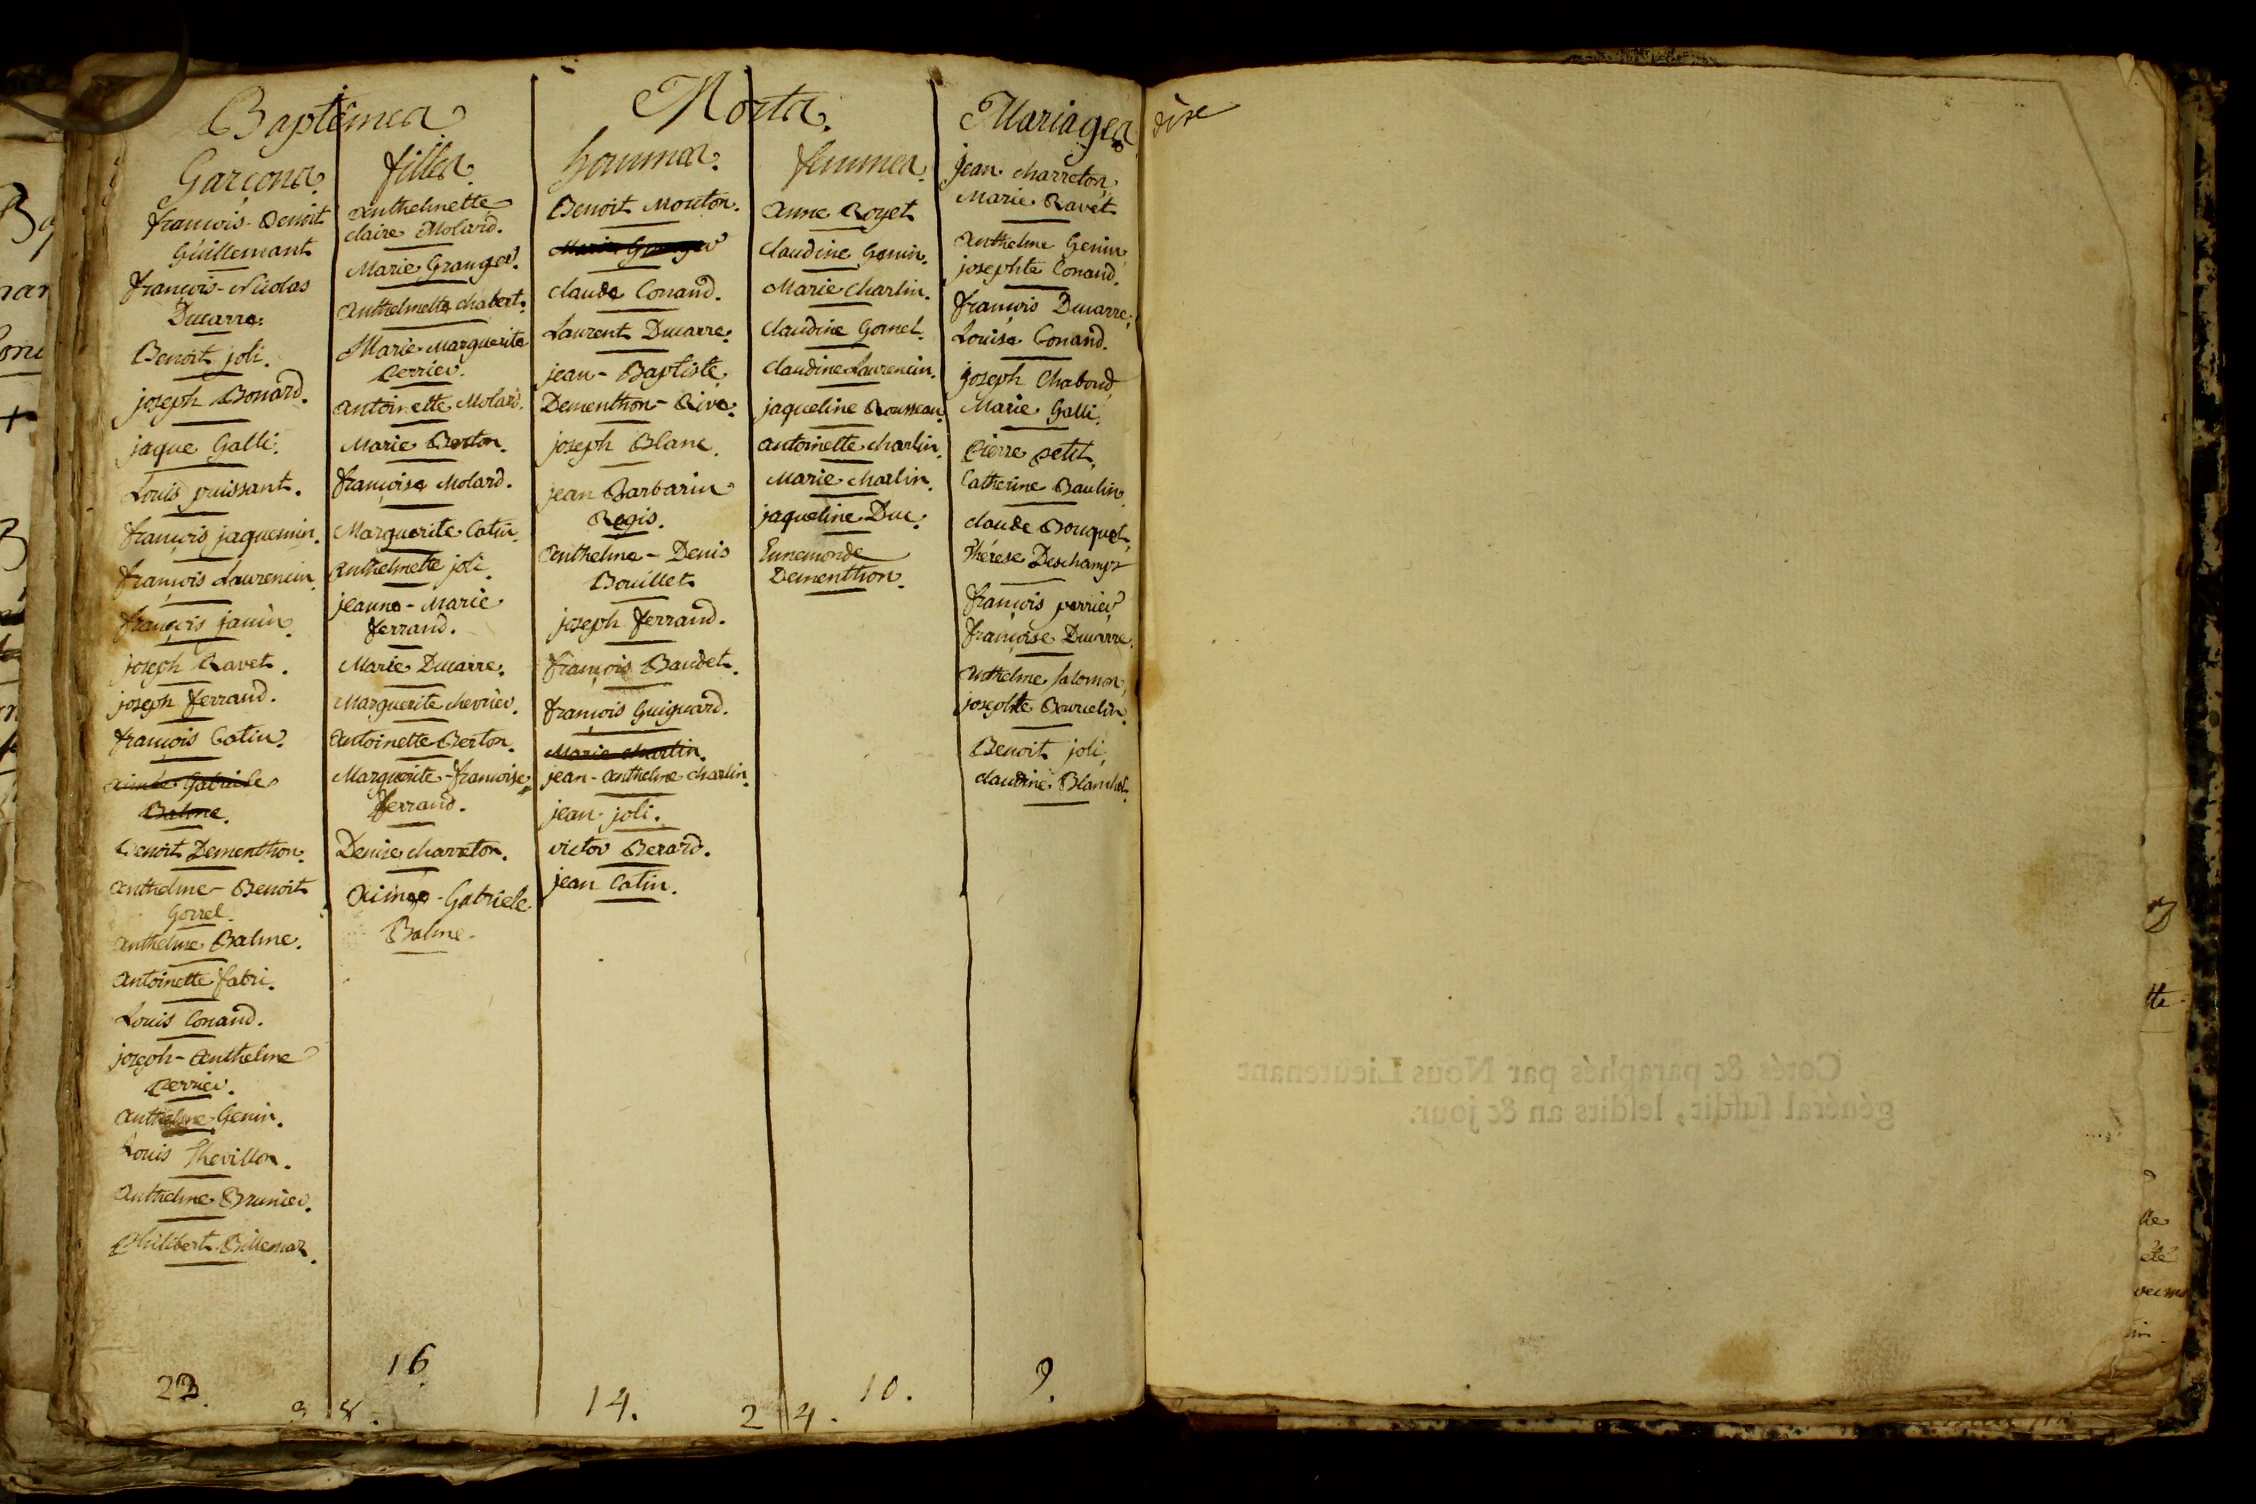 Baptêmes
Garçons.
françois-Benoit
Guillemant
françois-Nicolas
Ducarre.
Benoit joli.
joseph Bonard.
jaque Galli.
Louis puissant.
françois jaquemin.
françois Laurencin
françois janin
joseph Ravet.
joseph ferrand.
françois Catin.
Aimée Gabriele
Balme.
Benoit Dementhon.
Anthelme-Benoit
Gorrel.
Anthelme Balme.
Antoinette fabri.
Louis Conand.
joseph-Anthelme
Perrier.
Anthelme Genin.
Louis Thevillon.
Anthelme Brunier.
Philibert Billemaz.
filles
Anthelmette
claire Molard.
Marie Granger.
Anthelmette chabert.
Marie Marguerite
Perrier.
Antoinette Molard.
Marie Berton.
françoise Molard.
Marguerite Catin.
Anthelmette joli.
jeanne-Marie
ferrand.
Marie Ducarre.
Marguerite chevrier.
Antoinette Berton.
Marguerite-françoise
ferrand.
Denise charreton.
Aimée-Gabriele
Balme.
Morts.
hommes.
Benoit Mouton.
Marie Granger
claude Conand.
Laurent Ducarre.
jean-Baptiste
Dementhon-Rive.
joseph Blanc.
jean Barbarin
Regis.
Anthelme-Denis
Bouillet
joseph ferrand.
françois Baudet.
françois Guignard.
Marie charlin.
jean-Anthelme charlin.
jean joli.
victor Berard.
jean Catin.
femmes.
Anne Royet
claudine Genin.
Marie charlin.
claudine Gorrel.
claudine Laurencin.
jaqueline Rousseau.
Antoinette charlin.
Marie charlin.
jaqueline Duc.
Ennemonde
Dementhon.
Mariages
jean charreton,
Marie Ravet
Anthelme Genin,
josephte Conand.
françois Ducarre,
Louise Conand.
joseph Chaboud,
Marie Galli.
Pierre petit,
Catherine Baulin
claude Bouquet,
Thérese Deschamps
françois perrier
françoise Ducarre.
Anthelme Salomon,
josephte Bourcelin.
Benoit joli,
claudine Blanchet.
22.
16.
38.
14.
24.
10.
9.
Cotés & paraphés par Nous Lieutenant
général susdit, lesdits an & jour.